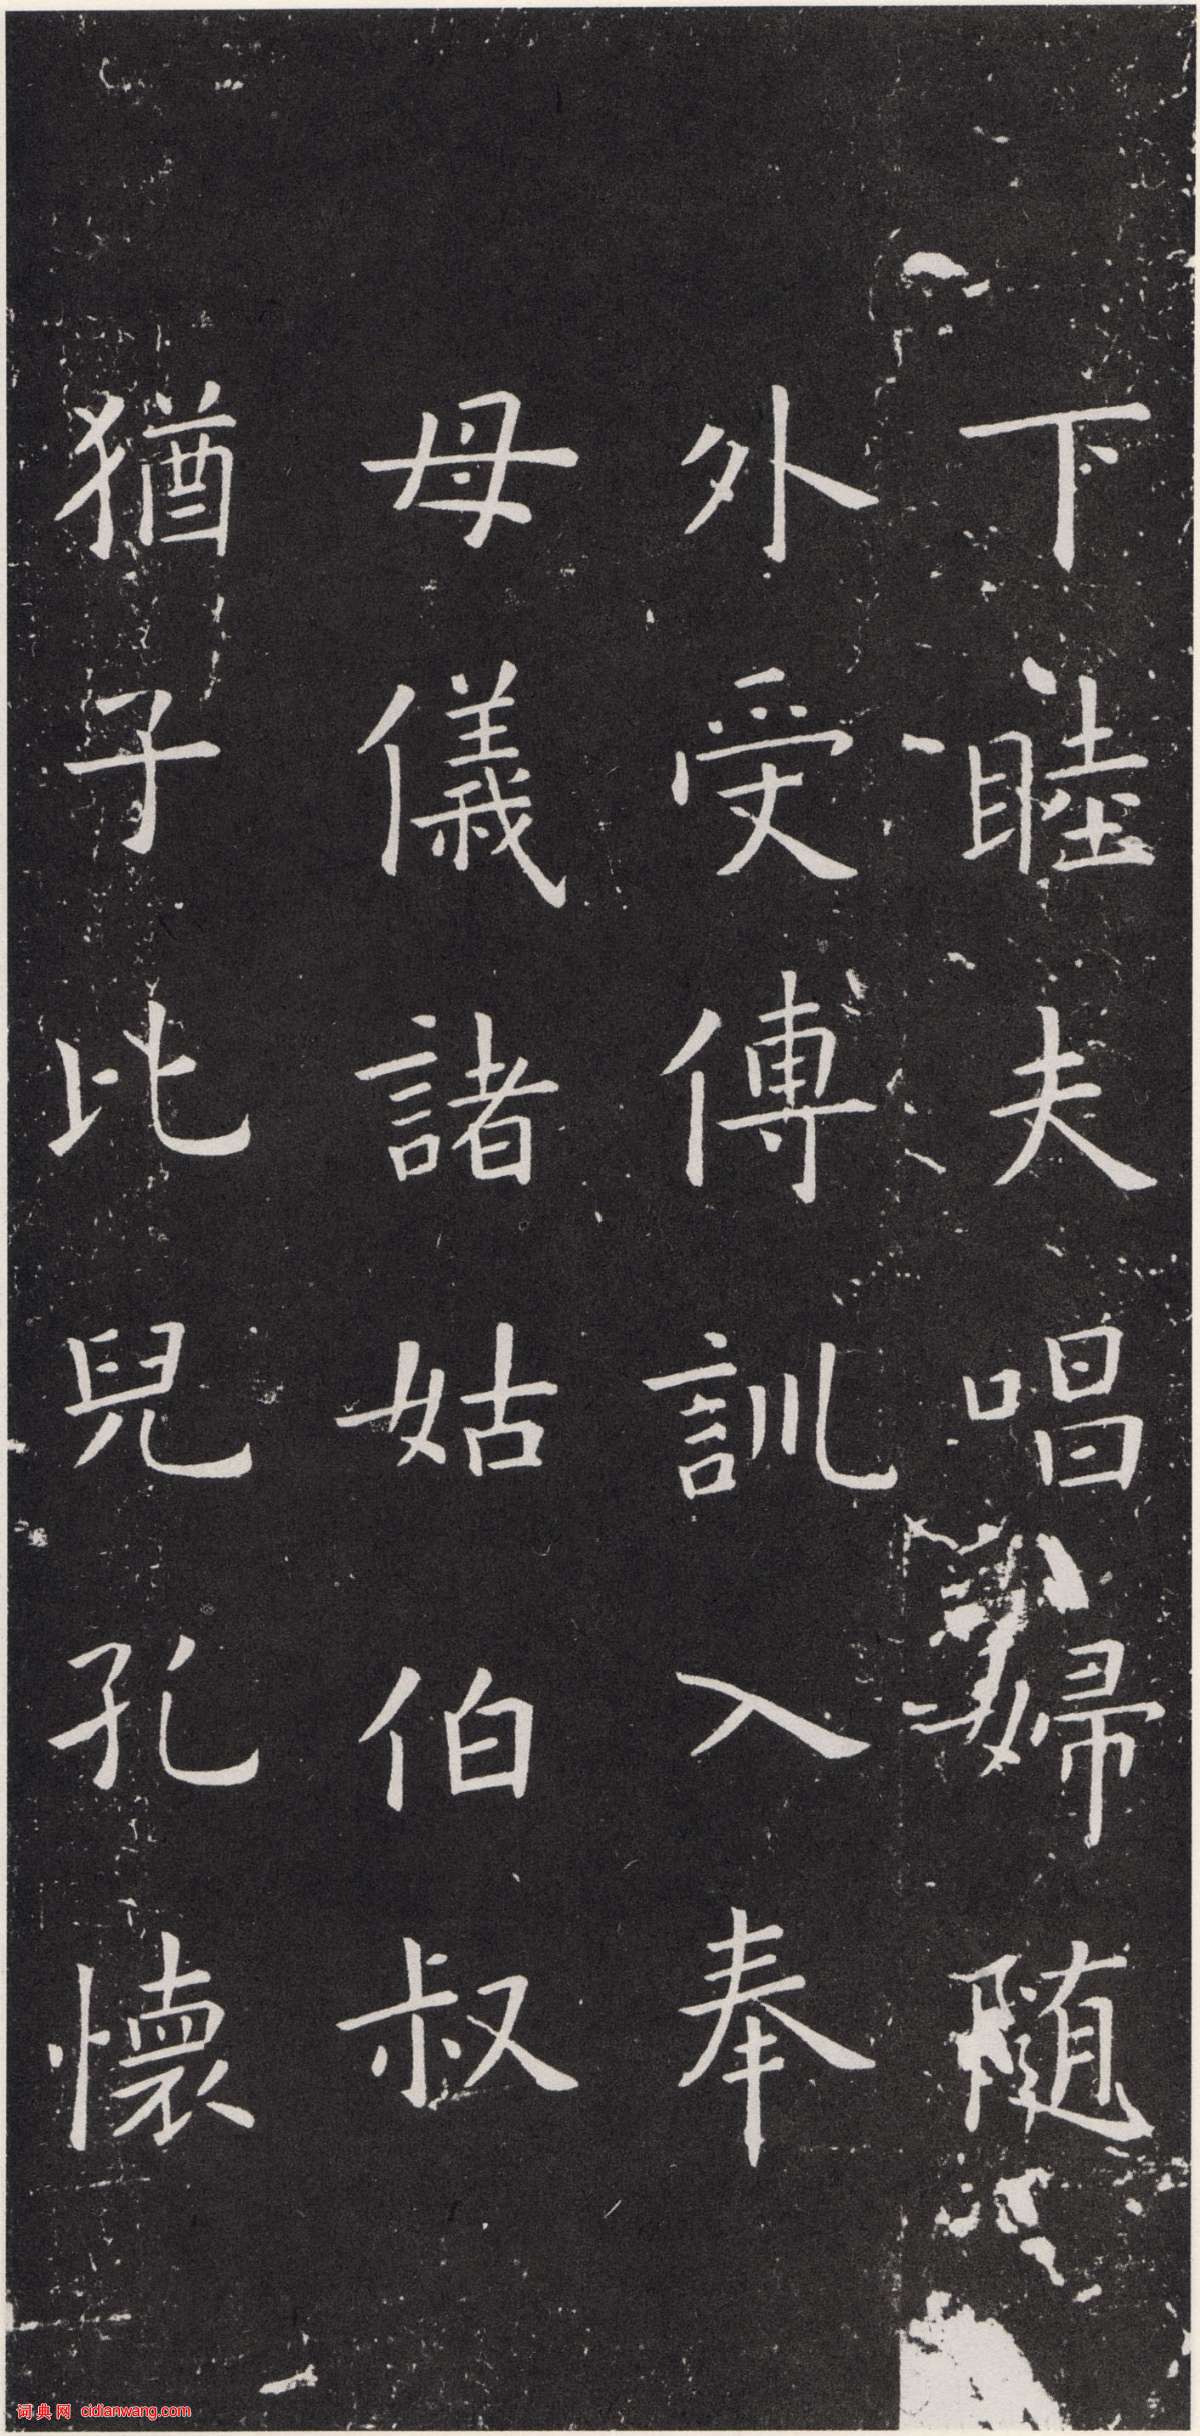 下睦夫唱婦随
外受傅訓入奉
母儀諸姑伯叔
猶子比兒孔懷
词典网 cidianwang.com